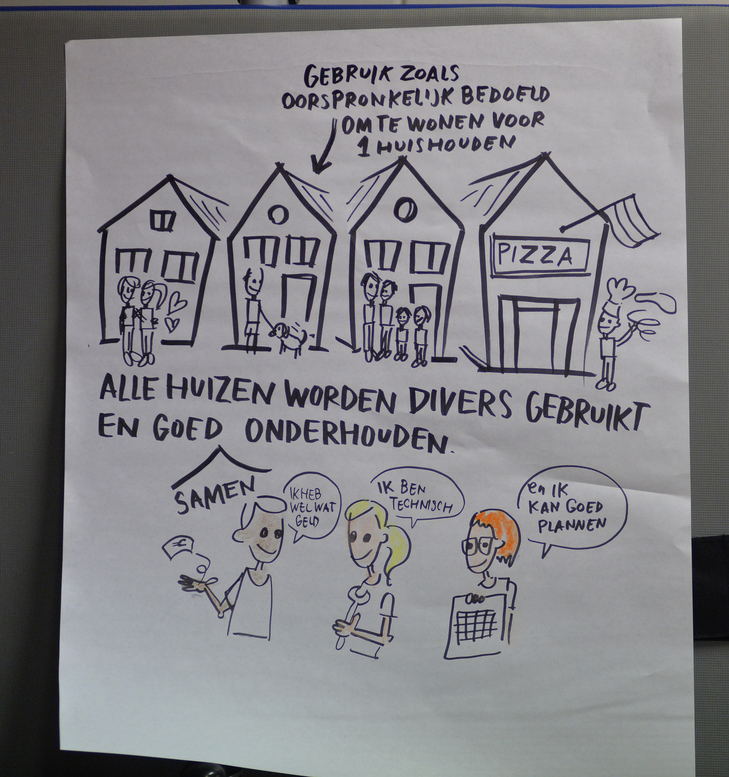 GEBRUIK ZOALS
OORSPRONKELIJK BEDOELD
OM TE WONEN VOOR
1 HUISHOUDEN
PIZZA
ALLE HUIZEN WORDEN DIVERS GEBRUIKT
EN GOED ONDERHOUDEN.
SAMEN
IK HEB
WEL WAT
GELD
IK BEN
TECHNISCH
en IK
KAN GOED
PLANNEN